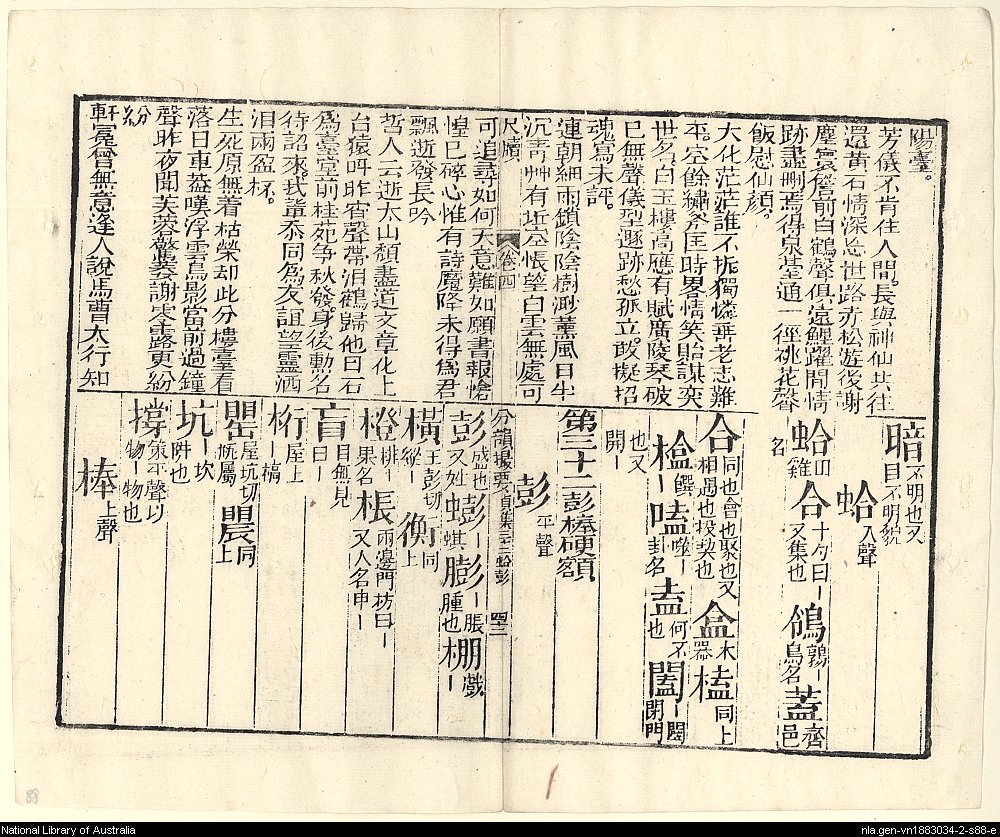 陽臺。
芳儀不肯在人間。長與神仙共往
還黃石情深忘世路赤松遊後謝
塵寰簷前白鶴聲俱遠鯉躍閒情
跡盡刪焉得泉臺通一徑桃花聲
飯慰仙顏。
大化茫茫誰不 獨憐 老志難
平。空餘繡斧匡時畧情笑貽謀奕
世名。白玉樓高應有賦廣陵琴破
已無聲儀型遯跡愁孤立。敢擬招
魂寫未評。
連朝細雨鎖陰陰樹渺薰風日半
沉青艸有坵空悵望白雲無處可
尺牘 卷四
可追尋如何天意難如願書報愴
惶已碎心惟有詩魔降未得為君
飄逝發長吟
哲人云逝太山頹盡道文章化上
台猿呌昨宵聲帶泪鶴歸他日石
為臺堂前桂死爭秋發。身後勳名
待詔來我輩忝同為友誼望靈洒
泪兩盈杯。
生死原無着枯榮却此分樓臺看
落日車蓋嘆浮雲鳥影當前過鐘
聲昨夜聞芙蓉驚夢謝 露更紛
紛
軒冕曾無意逢人說馬曹太行知
暗 不明也又目不明貌
蛤 入聲
蛤 田雞名 合 十勺曰丨又集也 鴿 鵓丨鳥名 蓋 齊邑
合 同也會也聚也又相遇也投契也 盒 木器 榼 同上
榼 饌丨 嗑 噬丨卦名 盍 何不也 闔 丨闢閉門
也又開丨
第三十二彭棒硬額
彭 平聲
分韻撮要貞集 三十二 蛤彭 四二
彭 盛也又姓 蟛 丨蜞 膨 丨脹腫也 棚 戲丨
橫 王彭切縱丨 衡 同上
橙 柑丨果名 棖 兩邊門枋曰丨又人名申丨
盲 目無見曰丨
桁 屋上丨槁
罌 屋坑切瓶屬 同上
坑 丨坎阱也
撐 策平聲以物丨物也
棒 上聲